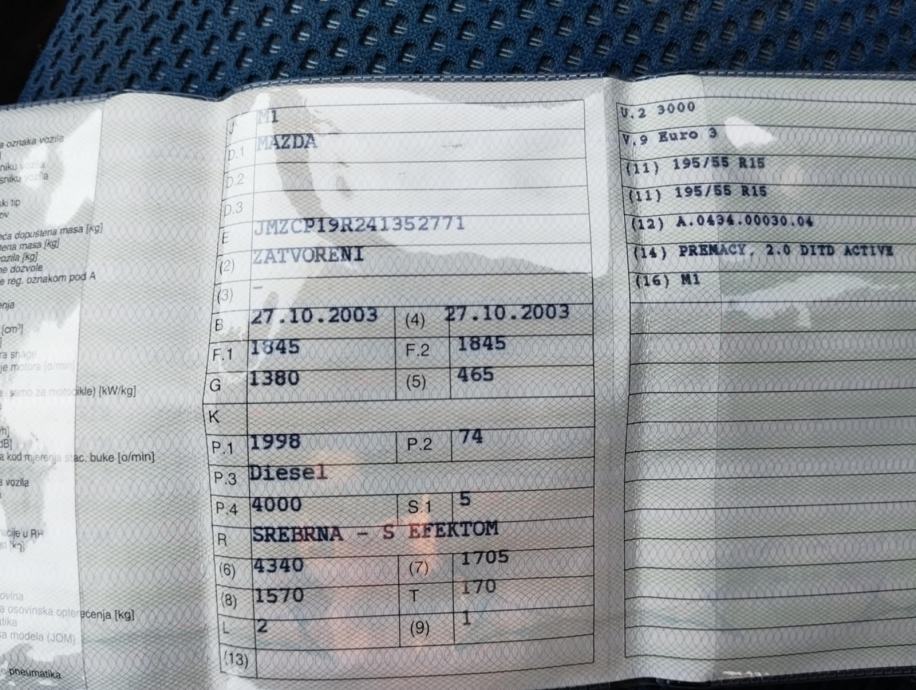 a oznaka vozila
niku vozila
sniku vozila
ski tip
ov
eća dopuštena masa [kg]
tena masa [kg]
vozila [kg]
ne dozvole
e reg. oznakom pod A
enja
[cm³]
je motora [o/min]
samo za motocikle) [kW/kg]
dB]
a kod mjerenja stac. buke [o/min]
vozila
cije u RH
[kg]
ovina
a osovinska opterećenja [kg]
tika
sa modela (JOM)
o pneumatika
J M1
D.1 MAZDA
D.2
D.3
E JMZCP19R241352771
(2) ZATVORENI
(3) –
B 27.10.2003 (4) 27.10.2003
F.1 1845 F.2 1845
G 1380 (5) 465
K
P.1 1998 P.2 74
P.3 Diesel
P.4 4000 S.1 5
R SREBRNA - S EFEKTOM
(6) 4340 (7) 1705
(8) 1570 T 170
L 2 (9) 1
(13)
U.2 3000
V.9 Euro 3
(11) 195/55 R15
(11) 195/55 R15
(12) A.0434.00030.04
(14) PREMACY, 2.0 DITD ACTIVE
(16) M1